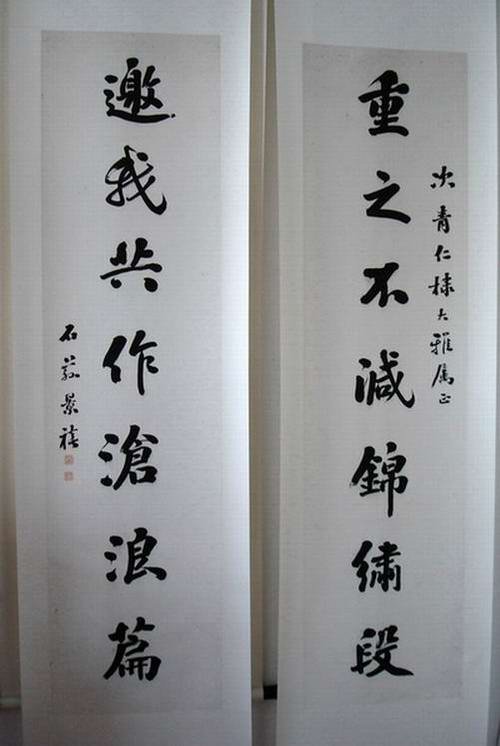 重之不減錦繡段
次青仁棣大雅属正
邀我共作滄浪篇
石蓀景禧